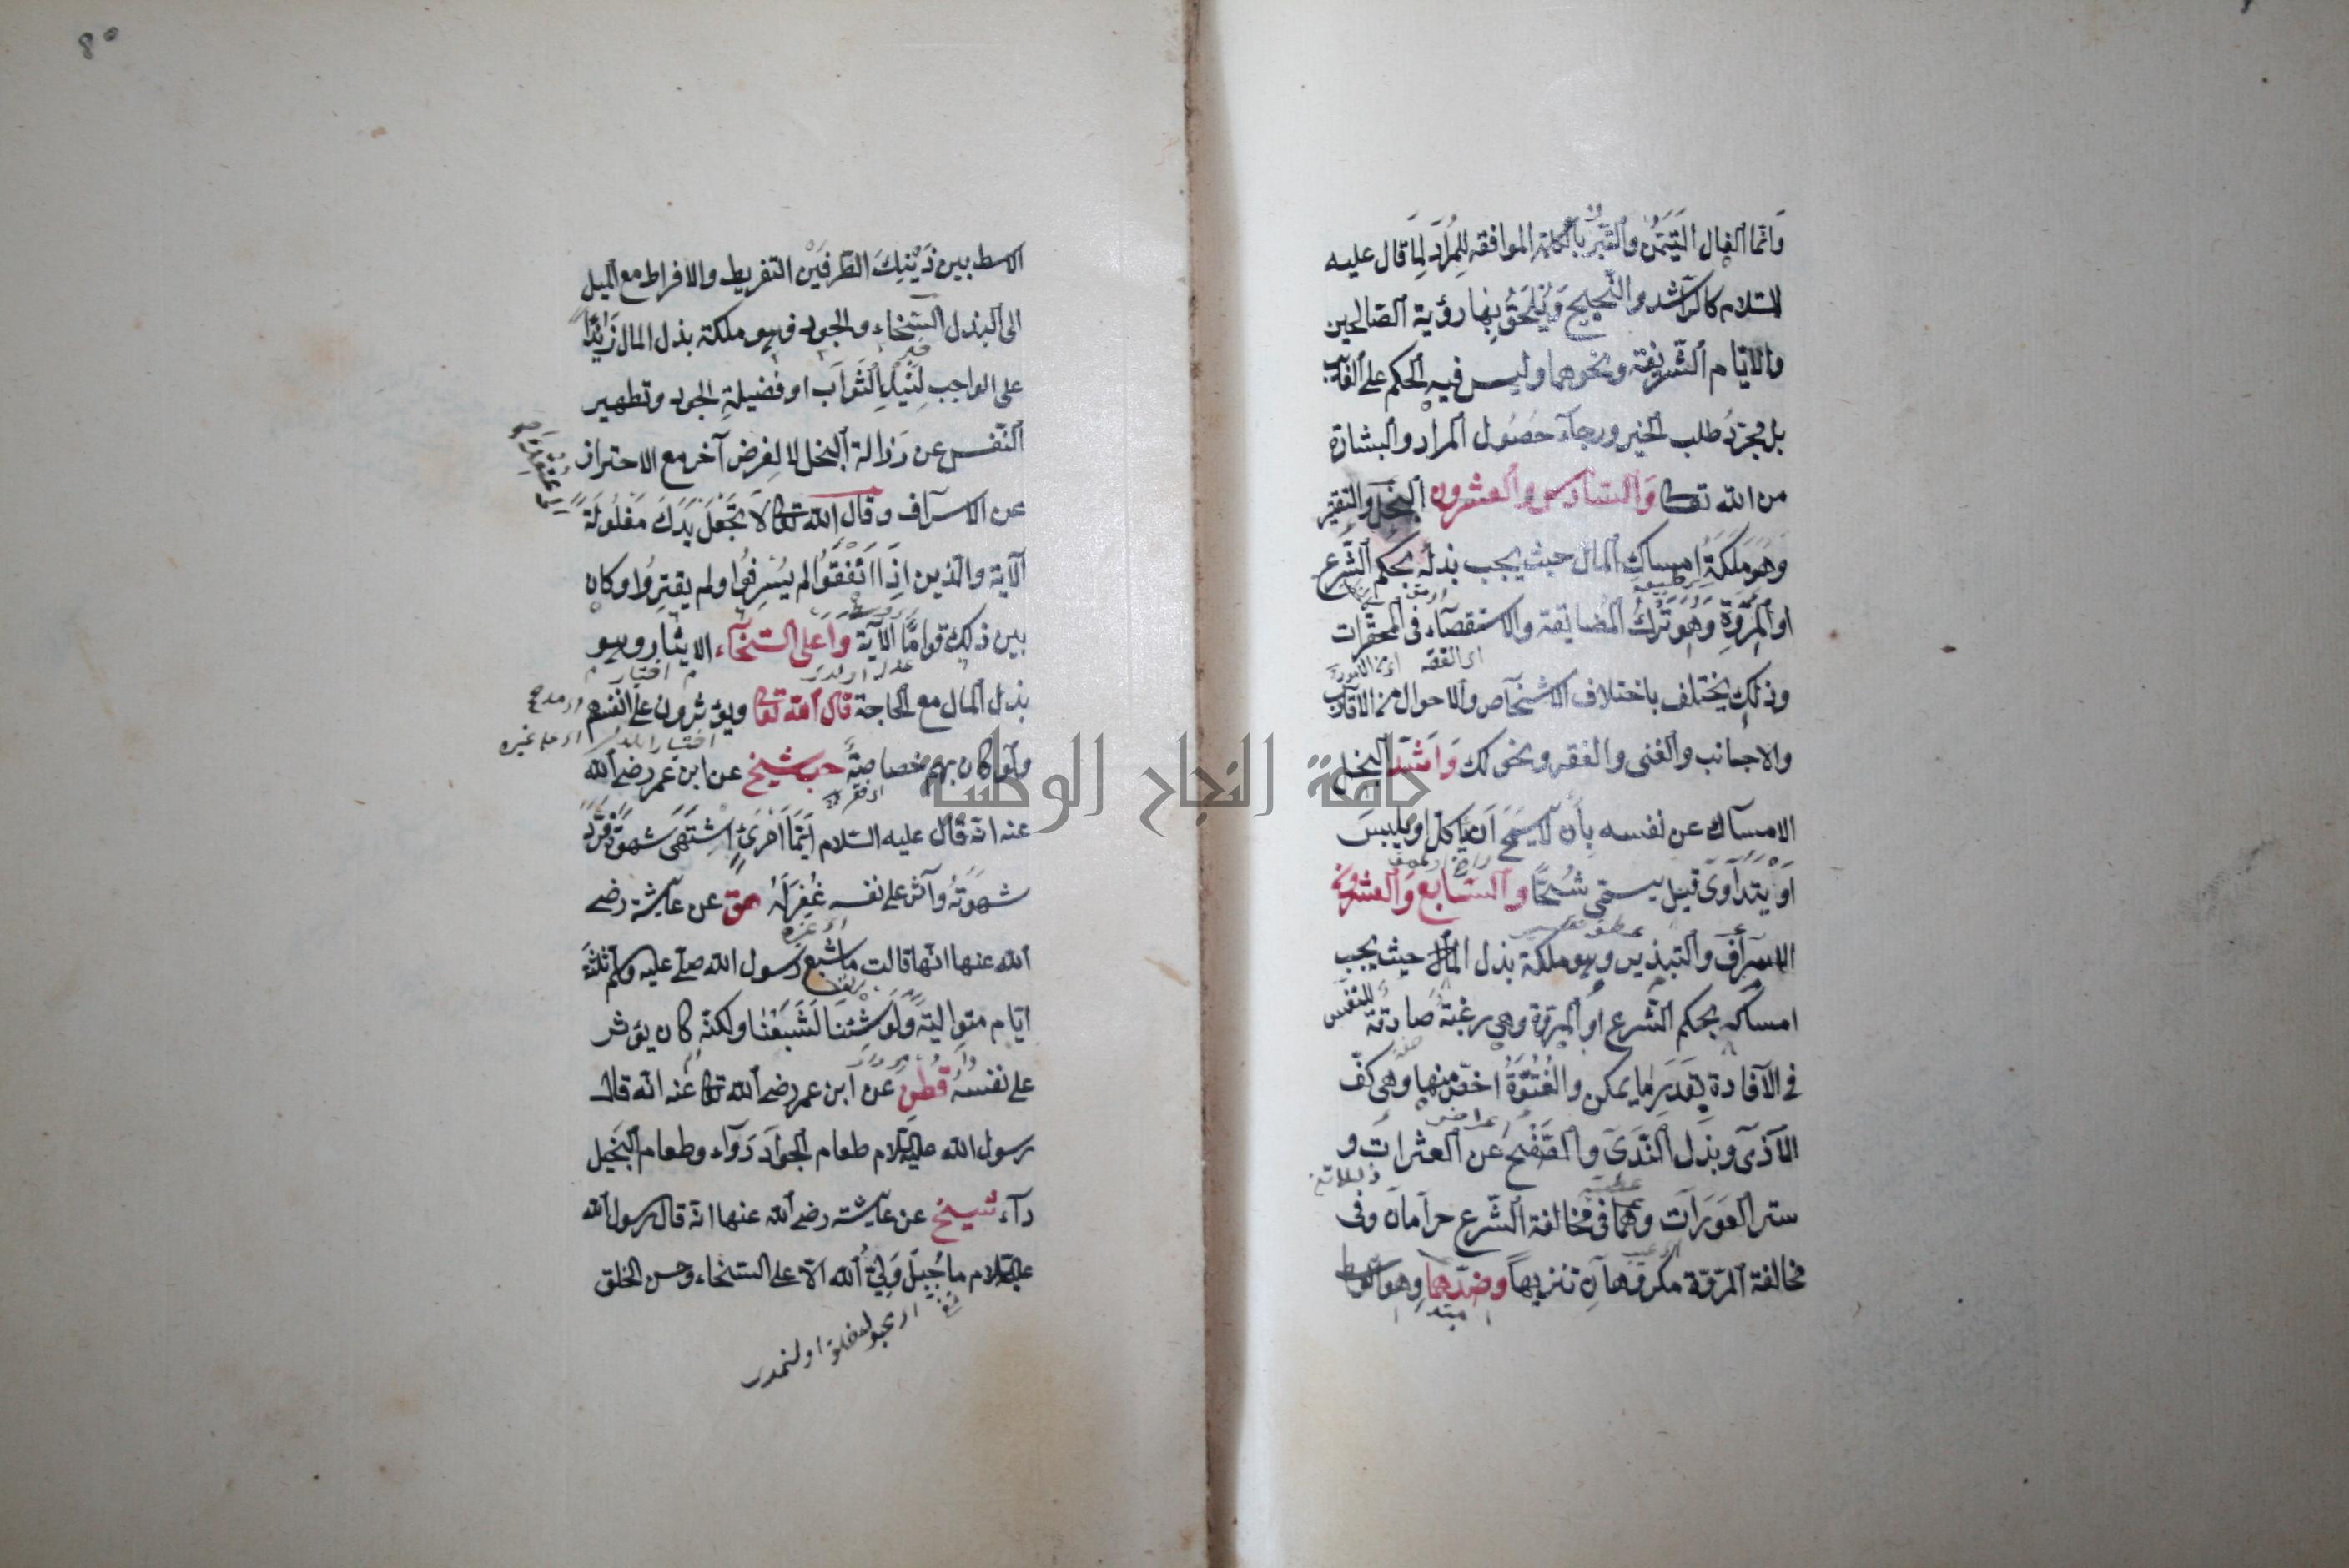 وانما الفال التيمن والتبرك بالكلمة الموافقه للمراد لما قال عليه
السلام كالراشد والنجيح ويلحق بها رؤية الصالحين
والايام الشريفة ونحوهما وليس فيه الحكم على الغائب
بل مجرد طلب الخير ورجاء حصول المراد والبشارة
من الله تعالى والسادس والعشرون البخل والتقتير
وهو ملكة امساك المال حيث يجب بذله بحكم الشرع
او المروة وهو ترك المضايقة والاستقصاء فى المحقرات
اى الفقه
وذلك يختلف باختلاف الاشخاص والاحوال من الاقارب
والاجانب والغنى والفقر ونحو ذلك واشد البخل
الامساك عن نفسه بان لا يسمح ان ياكل او يلبس
او يتداوى قيل يسمى شحا والسابع والعشرون
عطف تفسير
الاسراف والتبذير وهو ملكة بذل المال حيث يجب
امساكه بحكم الشرع او المروة وهى رغبة صادقة للنفس
فى الافادة بقدر ما يمكن والفتوة اخص منها وهى كف
الاذى وبذل الندى والصفح عن العثرات و
ستر العورات وهما فى مخالفة الشرع حرامان وفى
مخالفة المروة مكروهان تنزيها وضدهما وهو
مبتدا
٨٥
الاسط بين ذينك الطرفين التفريط والافراط مع الميل
الى البذل السخاء والجود فهو ملكة بذل المال زائدا
خبر
على الواجب لنيل الثواب او فضيلة الجود وتطهير
النفس عن رذالة البخل لا لغرض آخر مع الاحتراز
عن الاسراف وقال الله تعالى لا تجعل يدك مغلولة
الآية والذين اذا انفقوا لم يسرفوا ولم يقتروا وكان
بين ذلك قواما الآية واعلى السخاء الايثار وهو
اختيار
بذل المال مع الحاجة قال الله تعالى ويؤثرون على انفسهم
اى على غيره
ولو كان بهم خصاصة حب شيخ عن ابن عمر رضى الله
اى فقر
عنه انه قال عليه السلام ايما امرئ اشتهى شهوة فرد
شهوته وآثر على نفسه غفر له حق عن عايشة رضى
اى غيره
الله عنها انها قالت ما شبع رسول الله صلى عليه وسلم ثلثة
ايام متوالية ولو شئنا لشبعنا ولكنه كان يؤثر
على نفسه قطن عن ابن عمر رضى الله تعالى عنه انه قال
رسول الله عليه السلام طعام الجواد دواء وطعام البخيل
داء شيخ عن عايشة رضى الله عنها انه قال رسول الله
عليه السلام ما جبل ولى الله الا على السخاء وحسن الخلق
جامعة النجاح الوطنية